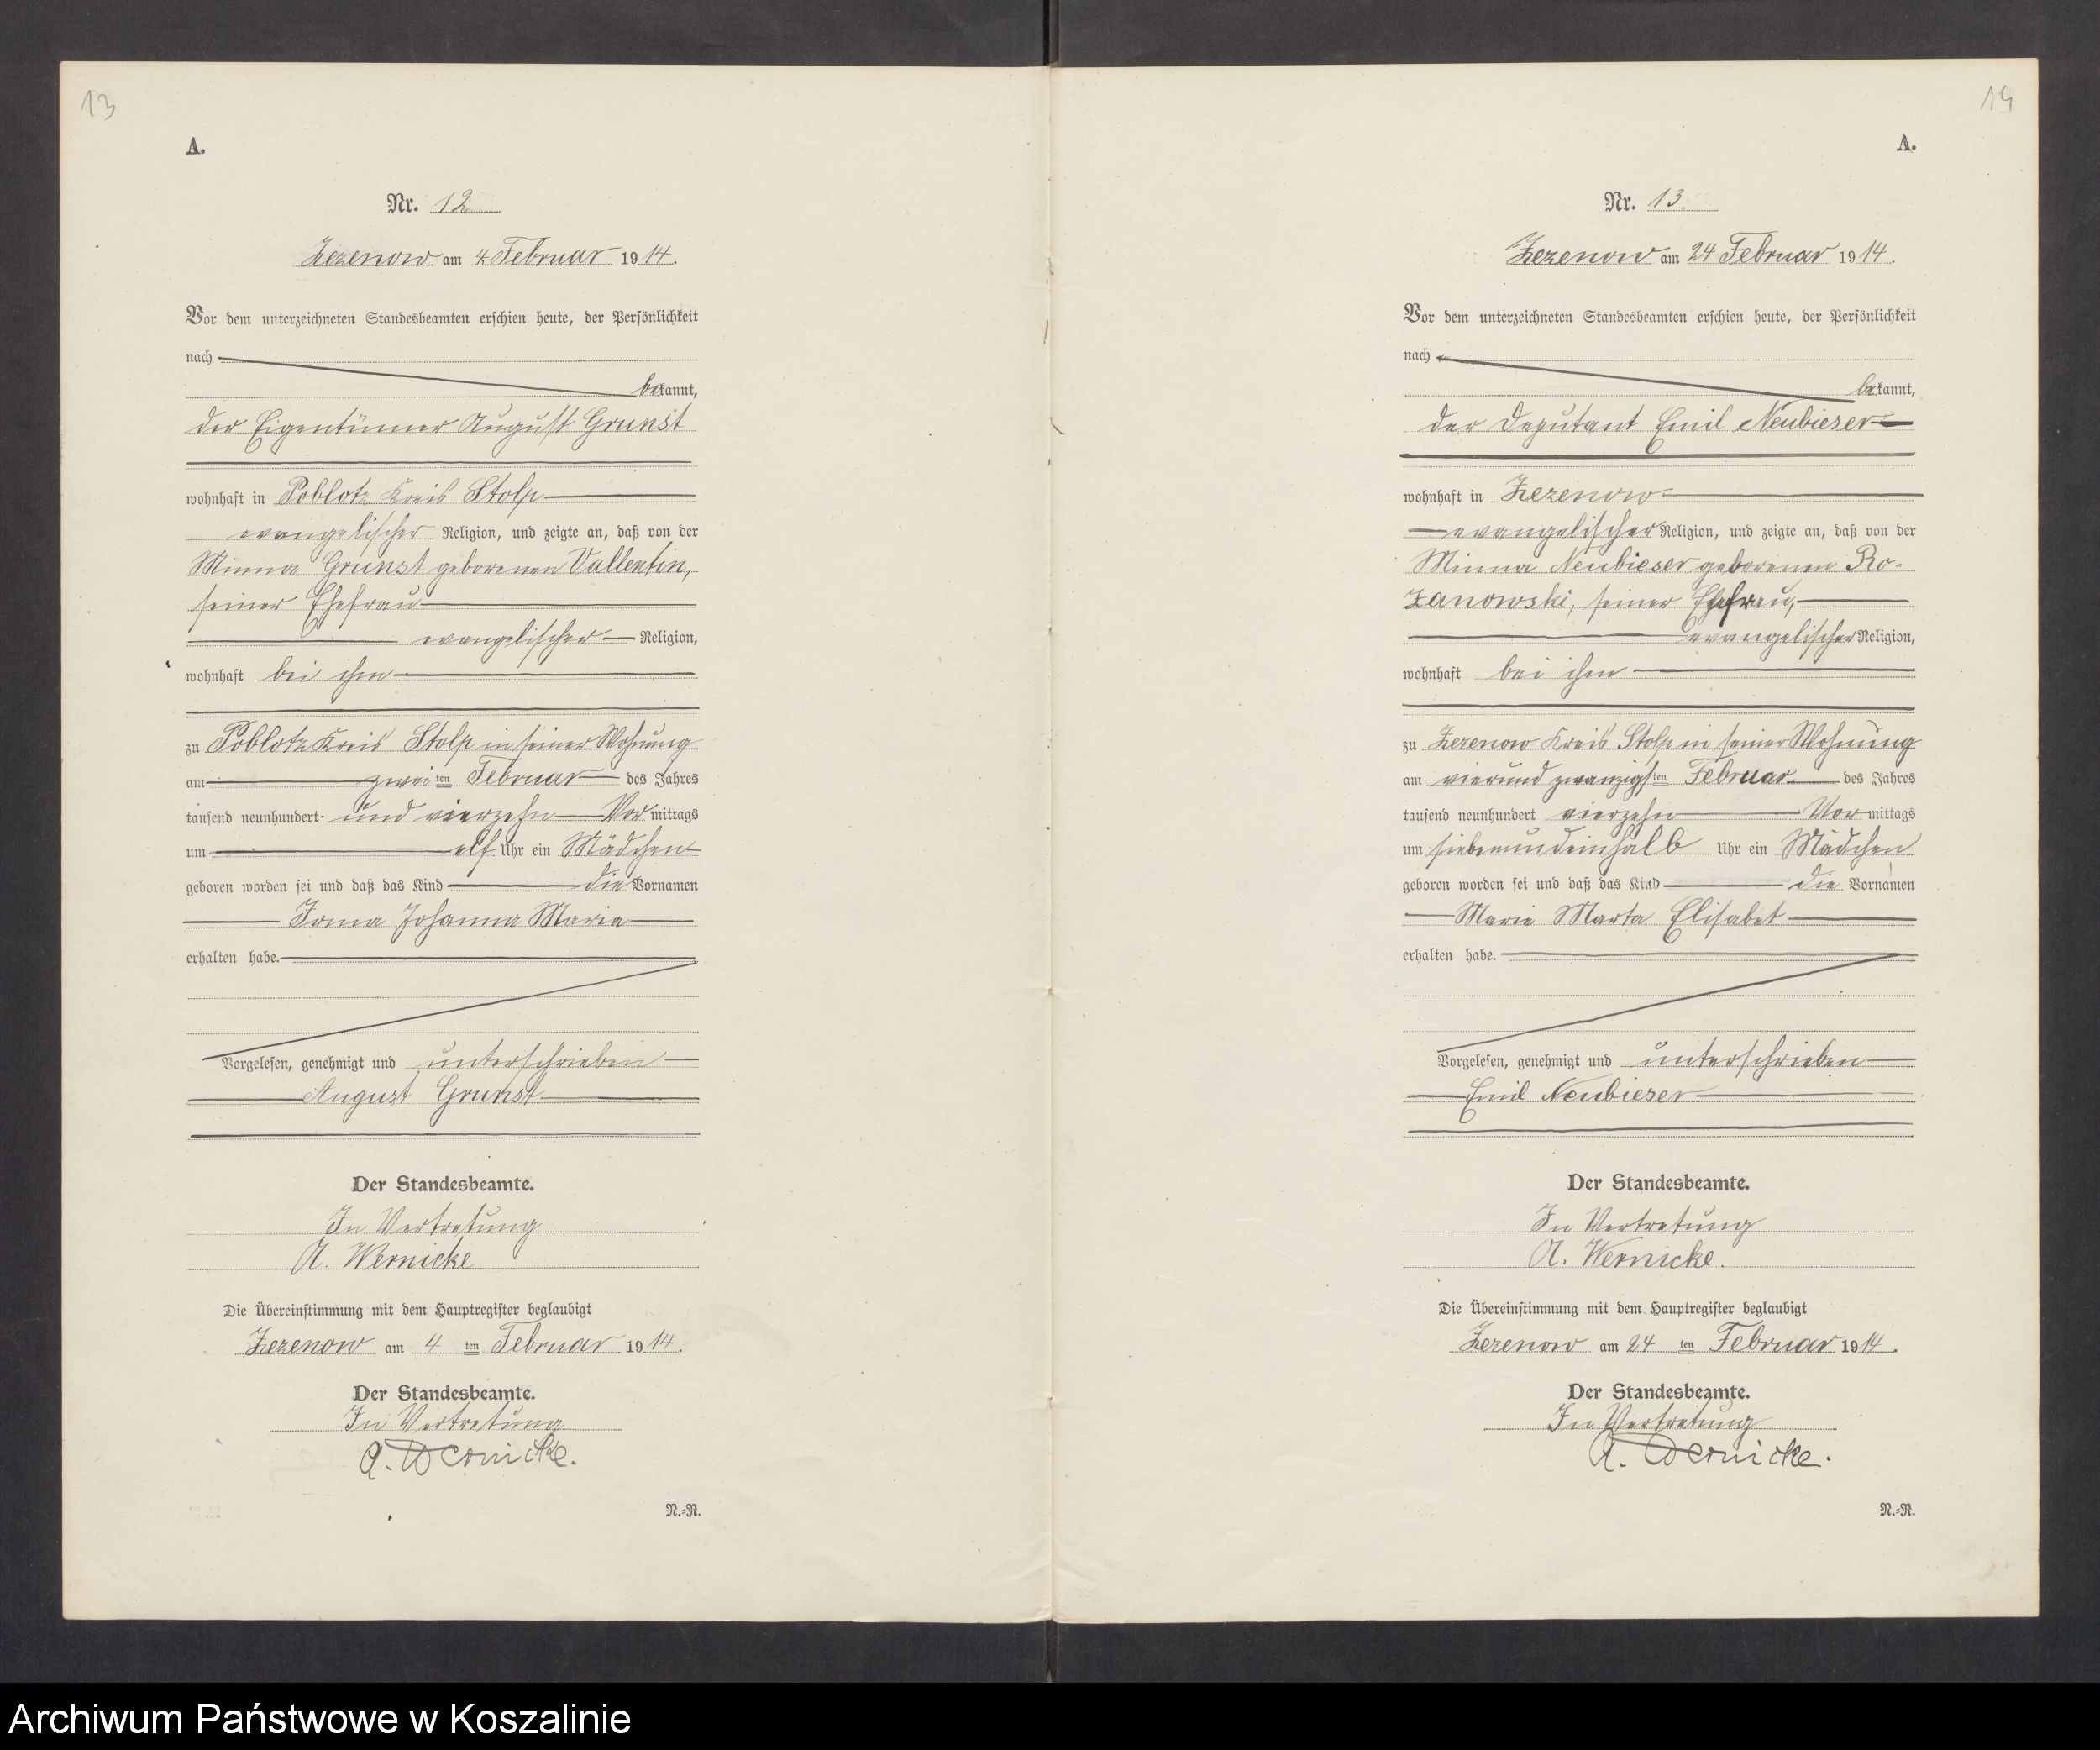 13
A.
Nr. 12
Zezenow am 4 Februar 1914.
Vor dem unterzeichneten Standesbeamten erschien heute, der Persönlichkeit
nach
bekannt,
der Eigentümer August Grunst
wohnhaft in Poblotz Kreis Stolp
evangelischer Religion, und zeigte an, daß von der
Minna Grunst geborenen Vallentin,
seiner Ehefrau
evangelischer Religion,
wohnhaft bei ihm
zu Poblotz Kreis Stolp in seiner Wohnung
am zweiten Februar des Jahres
tausend neunhundert und vierzehn Vor mittags
um elf Uhr ein Mädchen
geboren worden sei und daß das Kind die Vornamen
Irma Johanna Marie
erhalten habe.
Vorgelesen, genehmigt und unterschrieben
August Grunst
Der Standesbeamte.
In Vertretung
A. Wernicke
Die Übereinstimmung mit dem Hauptregister beglaubigt
Zezenow am 4 ten Februar 1914.
Der Standesbeamte.
In Vertretung
A. Wernicke.
N.-R.
14
A.
Nr. 13
Zezenow am 24 Februar 1914.
Vor dem unterzeichneten Standesbeamten erschien heute, der Persönlichkeit
nach
bekannt,
der Deputant Emil Neubieser
wohnhaft in Zezenow
evangelischer Religion, und zeigte an, daß von der
Minna Neubieser geborenen Ro-
zanowski, seiner Ehefrau,
evangelischer Religion,
wohnhaft bei ihm
zu Zezenow Kreis Stolp in seiner Wohnung
am vierundzwanzigsten Februar des Jahres
tausend neunhundert vierzehn Vor mittags
um siebenundeinhalb Uhr ein Mädchen
geboren worden sei und daß das Kind die Vornamen
Marie Marta Elisabet
erhalten habe.
Vorgelesen, genehmigt und unterschrieben
Emil Neubieser
Der Standesbeamte.
In Vertretung
A. Wernicke.
Die Übereinstimmung mit dem Hauptregister beglaubigt
Zezenow am 24 ten Februar 1914.
Der Standesbeamte.
In Vertretung
A. Wernicke.
N.-R.
Archiwum Państwowe w Koszalinie